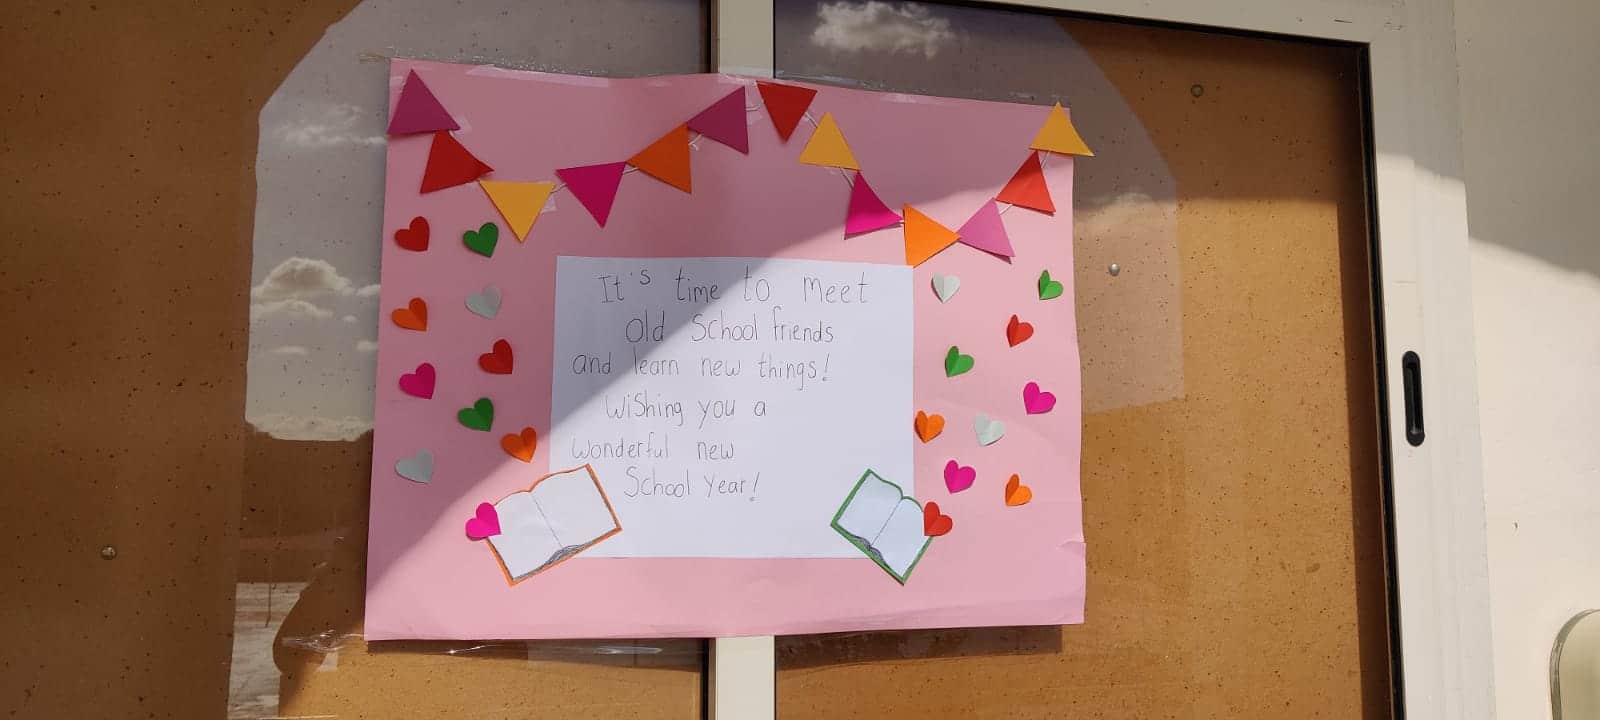 It's time to meet
old School friends
and learn new things!
Wishing you a
wonderful new
School Year!